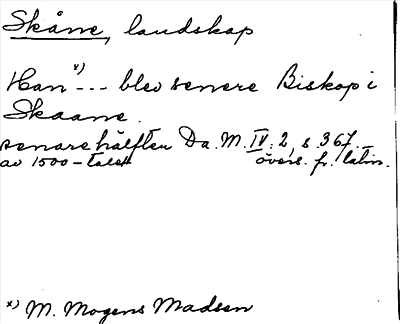 Skåne, landskap
Han x) --- blev senere Biskop i
Skaane.
senare hälften Da. M. IV. 2, s. 367.
av 1500-talet övers. fr. latin.
x) M. Mogens Madsen